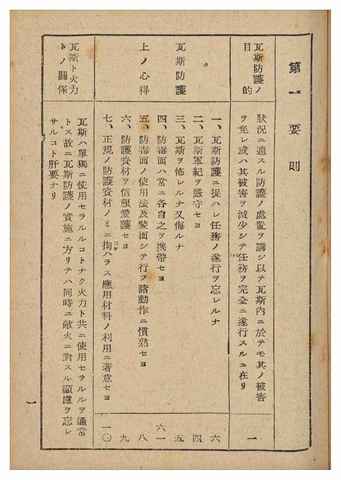 第一 要則
瓦斯防護ノ
目的
狀況ニ適スル防護ノ處置ヲ講シ以テ瓦斯內ニ於テモ其ノ被害
ヲ免レ或ハ其被害ヲ減少シテ任務ヲ完全ニ遂行スルニ在リ
一
瓦斯防護
上ノ心得
一、瓦斯防護ニ捉ハレ任務ノ遂行ヲ忘レルナ
六
二、瓦斯軍紀ヲ嚴守セヨ
四
三、瓦斯ヲ怖レルナ又侮ルナ
五
四、防毒面ハ常ニ各自之ヲ携帶セヨ
六一
五、防毒面ノ使用法及裝面シテ行フ諸動作ニ慣熟セヨ
八
六、防護資材ヲ信賴愛護セヨ
九
七、正規ノ防護資材ノミニ拘ハラス應用材料ノ利用ニ著意セヨ
一〇
瓦斯ト火力
トノ關係
瓦斯ハ單獨ニ使用セラルルコトナク火力ト共ニ使用セラルルヲ通常
トス故ニ瓦斯防護ノ實施ニ方リテハ同時ニ敵火ニ對スル顧慮ヲ忘レ
サルコト肝要ナリ
一